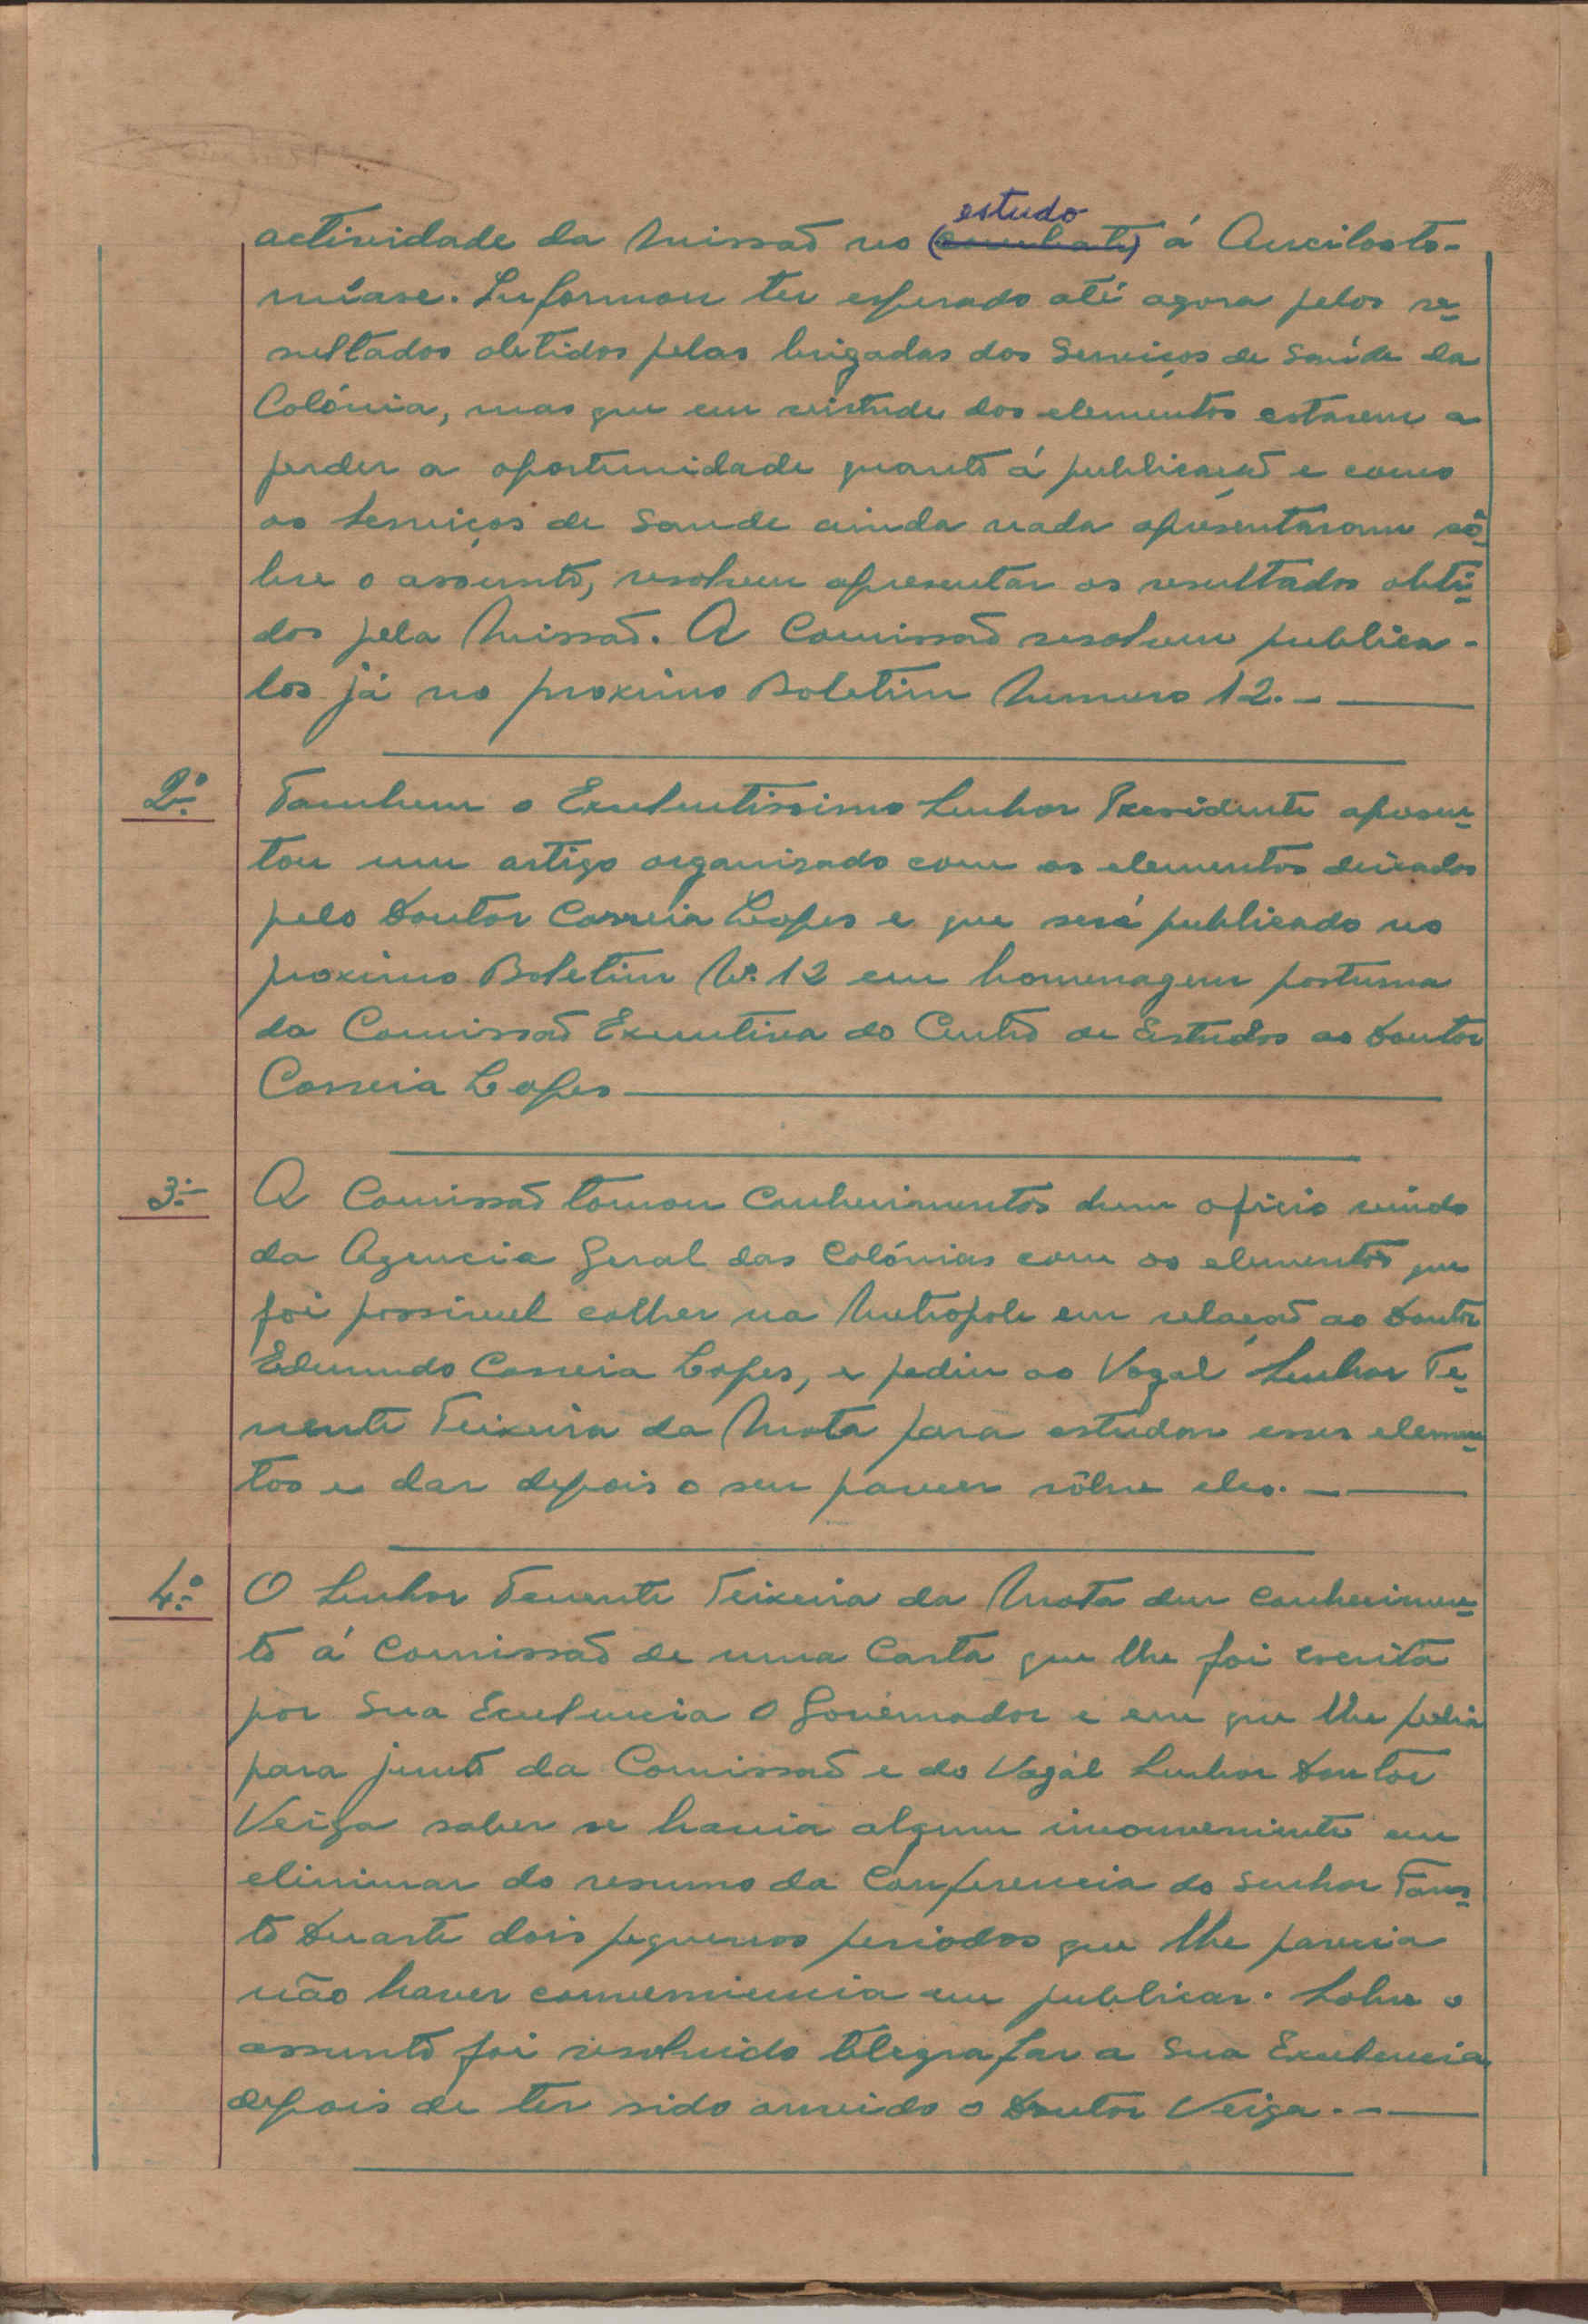 estudo
actividade da Missaõ no (combate) á Ancilosto-
míase. Informou ter esperado até agora pelos re-
sultados obtidos pelas brigadas dos Serviços de Saúde da
Colónia, mas que em virtude dos elementos estarem a
perder a oportunidade quanto á publicaçaõ e como
os Serviços de Saude ainda nada apresentaram sô-
bre o assunto, resolveu apresentar os resultados obti-
dos pela Missaõ. A Comissaõ resolveu publica-
los já no proximo Boletim Numero 12.-
2º- Tambem o Excelentissimo Senhor Presidente apresen-
tou um artigo organizado com os elementos deixados
pelo Doutor Correia Lopes e que será publicado no
proximo Boletim Nº. 12 em homenagem postuma
da Comissaõ Executiva do Centro de Estudos ao Doutor
Correia Lopes
3º- A Comissaõ tomou Conhecimentos dum oficio vindo
da Agencia Geral das Colónias com os elementos que
foi possivel colher na Metropole em relaçaõ ao Doutor
Edmundo Correia Lopes, e pediu ao Vogal Senhor Te-
nente Teixeira da Mota para estudar esses elemen-
tos e dar depois o seu parecer sôbre eles.-
4º- O Senhor Tenente Teixeira da Mota deu Conhecimen-
to á Comissaõ de uma Carta que lhe foi escrita
por Sua Excelencia O Governador e em que lhe pedia
para junto da Comissaõ e do Vogal Senhor Doutor
Veiga saber se havia algum inconveniente em
eliminar do resumo da Conferencia do Senhor Faus-
to Duarte dois pequenos periodos que lhe parecia
não haver conveniencia em publicar. Sobre o
assunto foi resolvido telegrafar a Sua Excelencia
depois de ter sido ouvido o Doutor Veiga.-